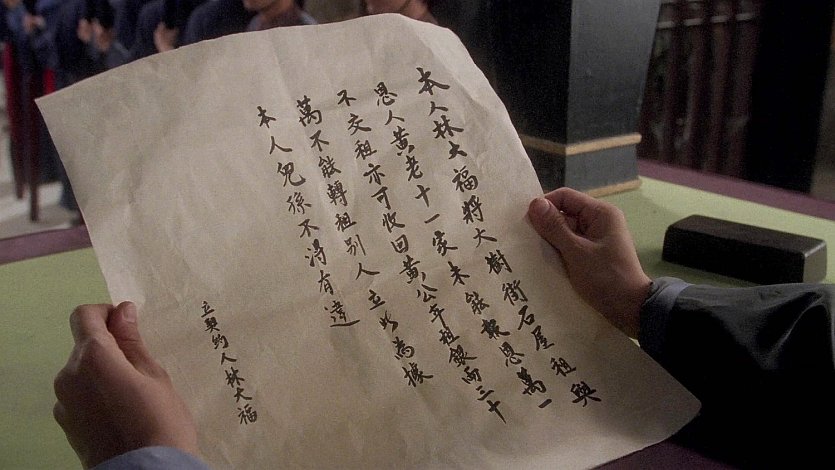 本人林大福將大樹街石屋租與
恩人黃老十一家未能報恩萬一
不交租亦可收回黃公年租銀両三十
萬不能轉租别人立此為據
本人兒孫不得有違
立契約人林大福